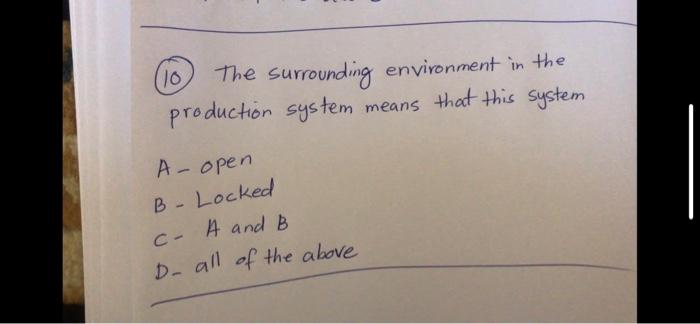 10 The surrounding environment in the
production system means that this system
A - open
B - Locked
C - A and B
D - all of the above